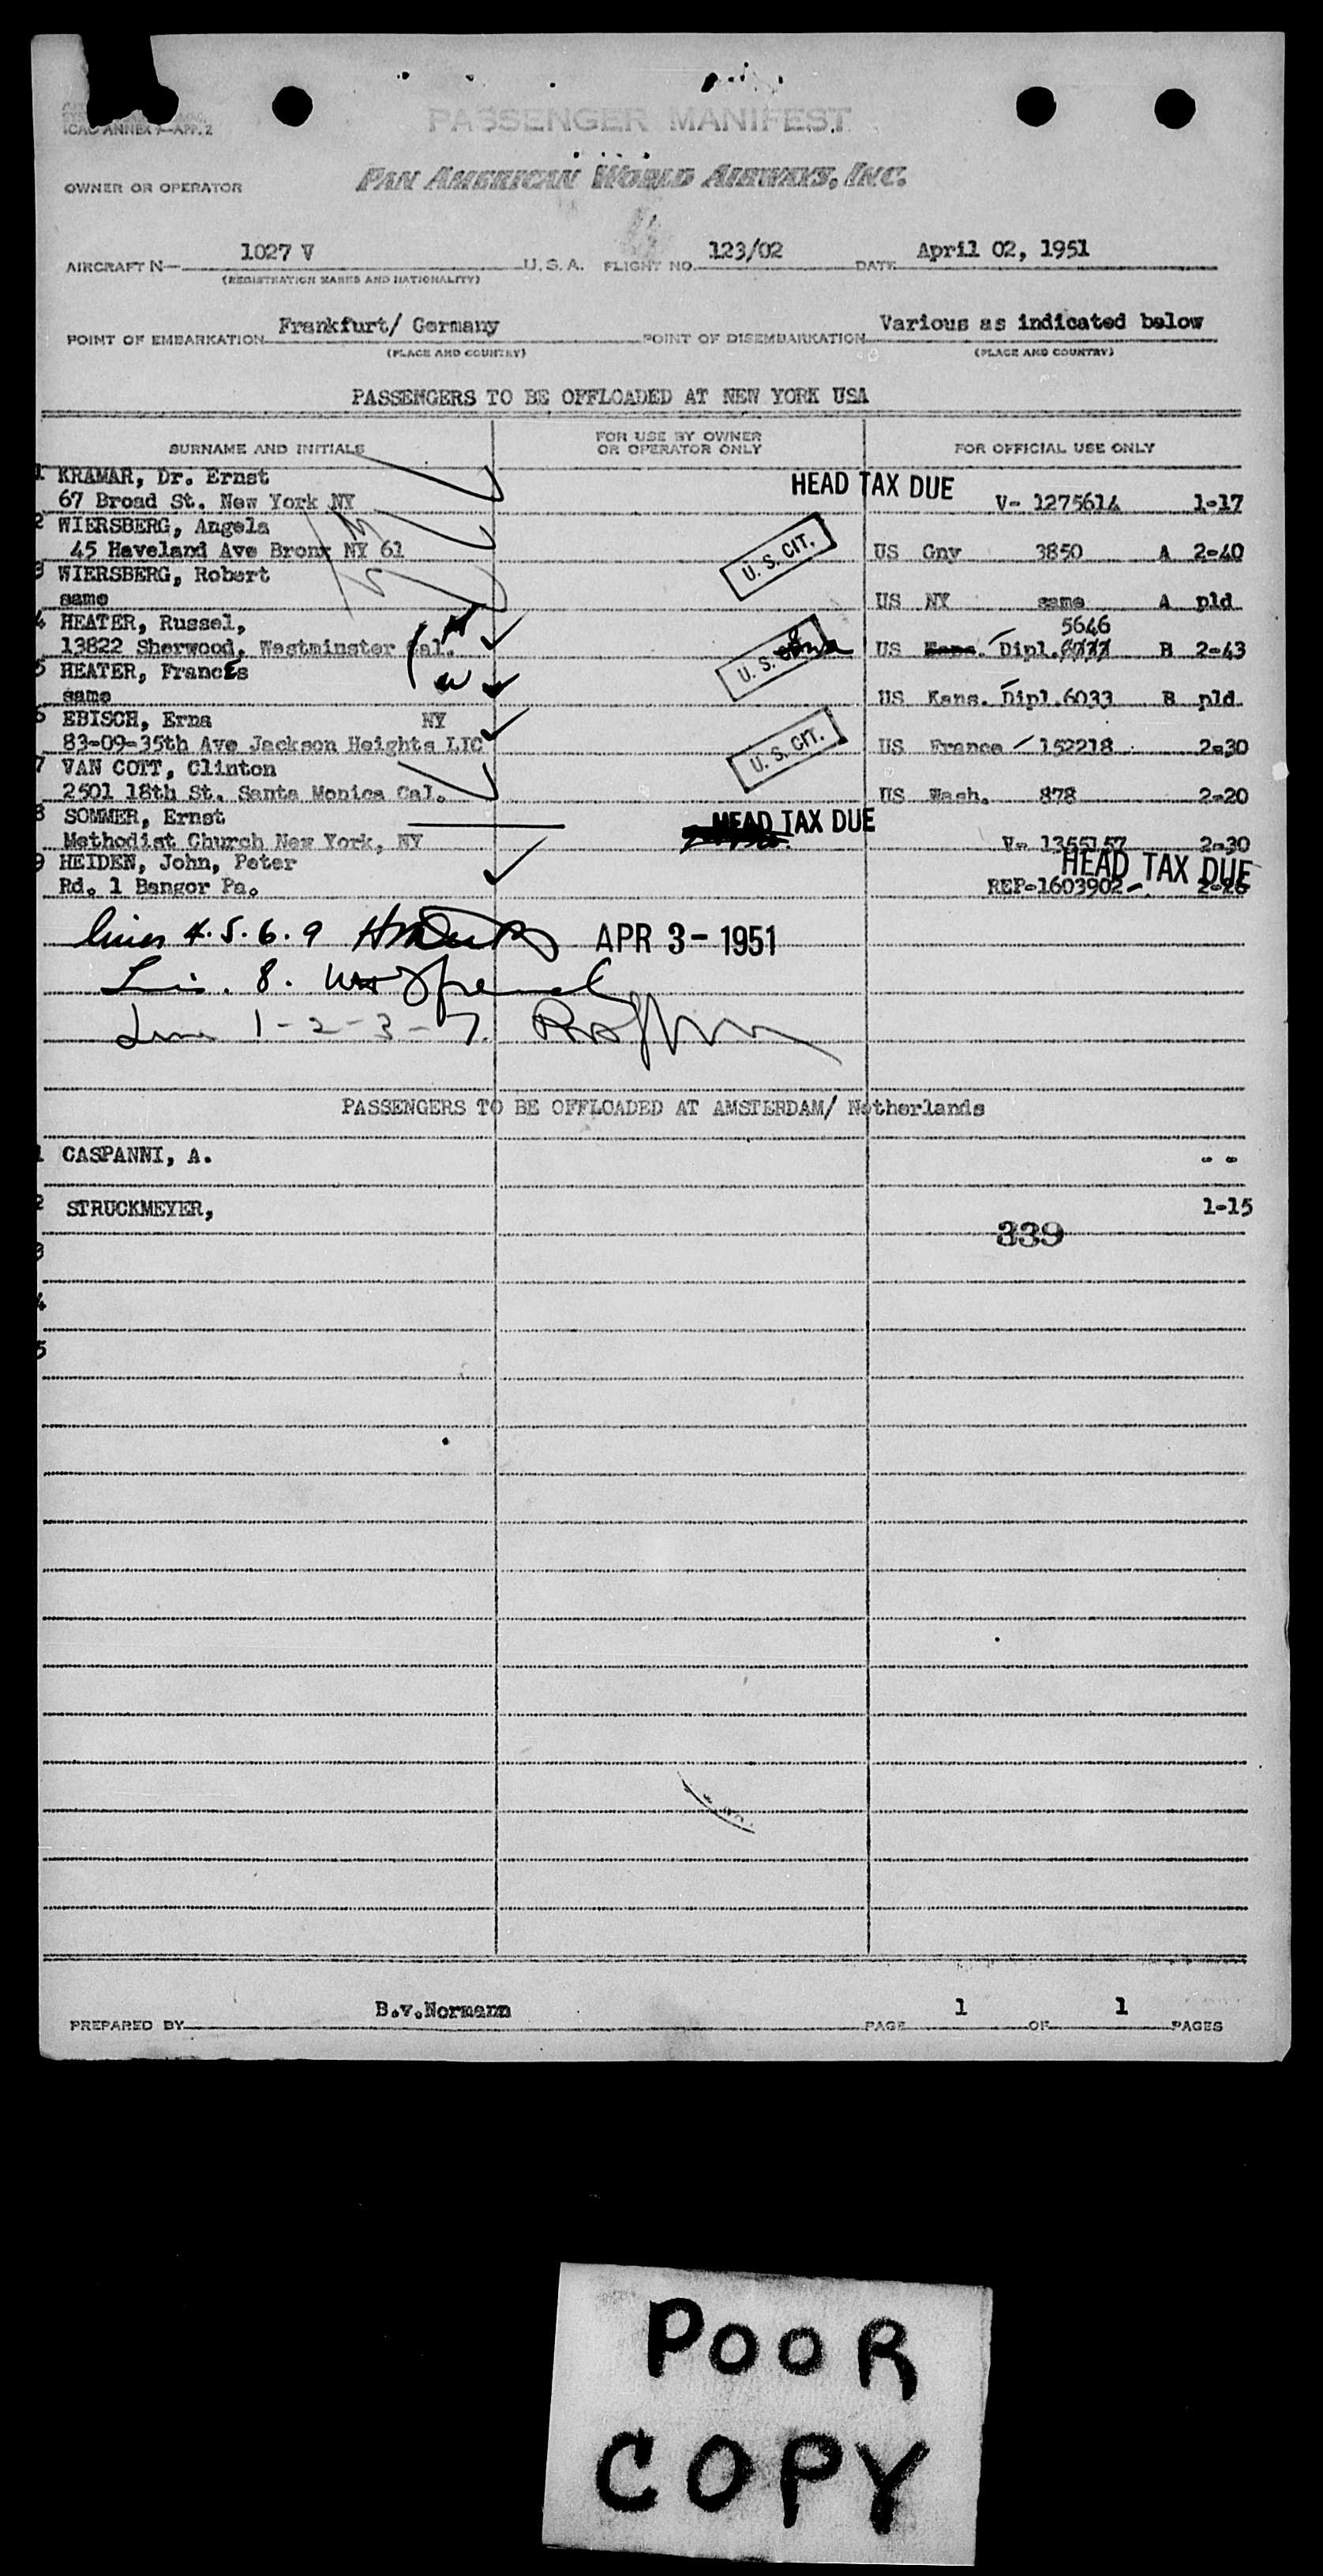 ICAO ANNEX 9—APP. 2
PASSENGER MANIFEST
OWNER OR OPERATOR PAN AMERICAN WORLD AIRWAYS, INC.
AIRCRAFT N— 1027 V U. S. A. FLIGHT NO. 123/02 DATE April 02, 1951
(REGISTRATION MARKS AND NATIONALITY)
POINT OF EMBARKATION Frankfurt/ Germany POINT OF DISEMBARKATION Various as indicated below
(PLACE AND COUNTRY) (PLACE AND COUNTRY)
PASSENGERS TO BE OFFLOADED AT NEW YORK USA
SURNAME AND INITIALS FOR USE BY OWNER OR OPERATOR ONLY FOR OFFICIAL USE ONLY
1 KRAMAR, Dr. Ernst HEAD TAX DUE
67 Broad St. New York NY V- 1275614 1-17
2 WIERSBERG, Angela
45 Haveland Ave Bronx NY 61 U. S. CIT. US Gny 3850 A 2-40
3 WIERSBERG, Robert
same US NY same A pld
4 HEATER, Russel, M 5646
13822 Sherwood, Westminster Cal. U. S. US Dipl. B 2-43
5 HEATER, Francęs
same W US Kans. Dipl.6033 B pld
6 EBISCH, Erna NY
83-09-35th Ave Jackson Heights LIC U. S. CIT. US France 152218 2-30
7 VAN COTT, Clinton
2501 18th St. Santa Monica Cal. US Wash. 878 2-20
8 SOMMER, Ernst HEAD TAX DUE
Methodist Church New York, NY V- 1355157 2-30
9 HEIDEN, John, Peter HEAD TAX DUE
Rd. 1 Bangor Pa. REP-1603902- 2-26
lines 4. 5. 6. 9 APR 3- 1951
8.
Line 1-2-3-7.
PASSENGERS TO BE OFFLOADED AT AMSTERDAM/ Netherlands
1 CASPANNI, A. - -
2 STRUCKMEYER, 1-15
339
3
4
5
B.v.Normann 1 1
PREPARED BY PAGE OF PAGES
POOR
COPY